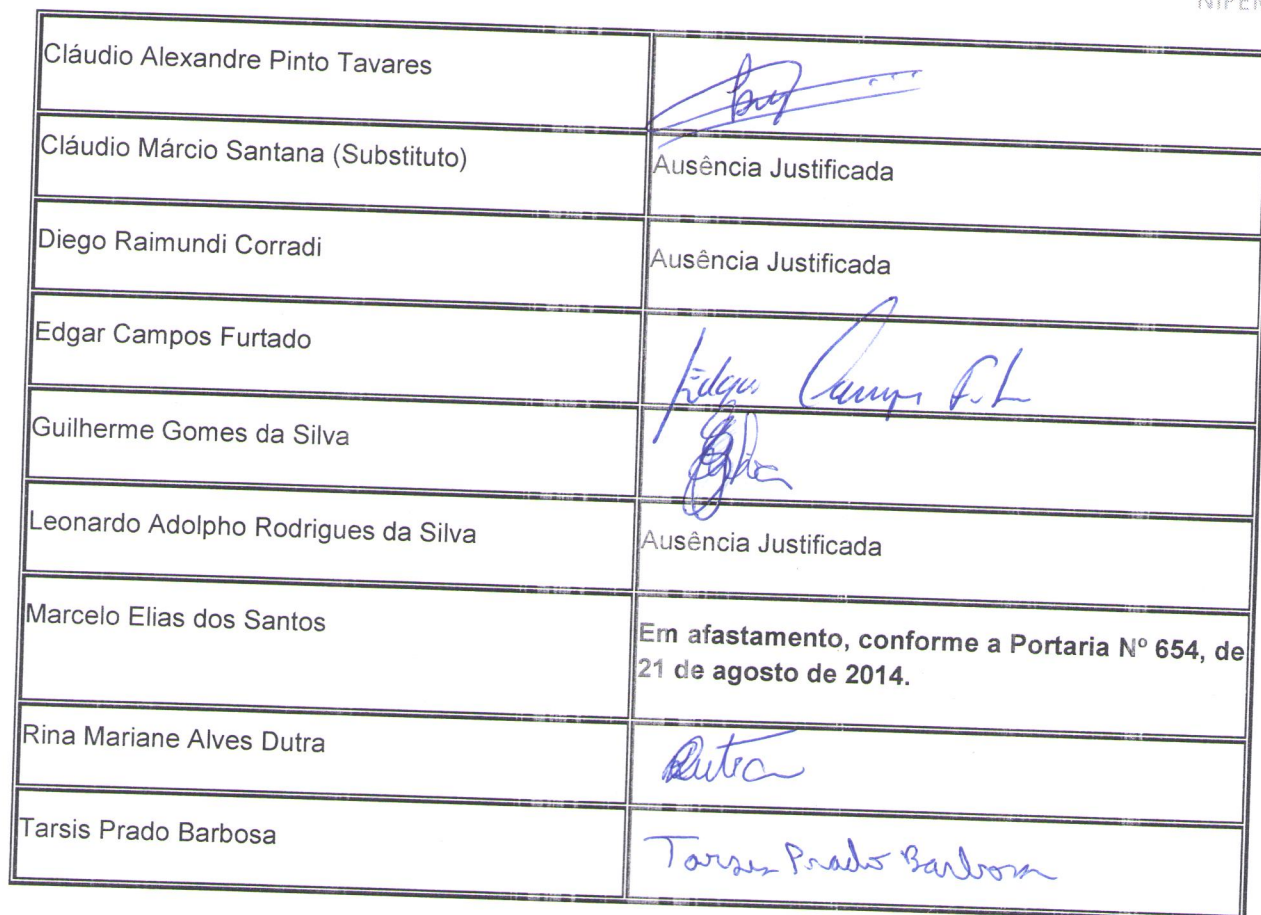 Cláudio Alexandre Pinto Tavares
Cláudio Márcio Santana (Substituto)
Ausência Justificada
Diego Raimundi Corradi
Ausência Justificada
Edgar Campos Furtado
Edgar Campos
Guilherme Gomes da Silva
Leonardo Adolpho Rodrigues da Silva
Ausência Justificada
Marcelo Elias dos Santos
Em afastamento, conforme a Portaria Nº 654, de
21 de agosto de 2014.
Rina Mariane Alves Dutra
Dutra
Tarsis Prado Barbosa
Tarsis Prado Barbosa